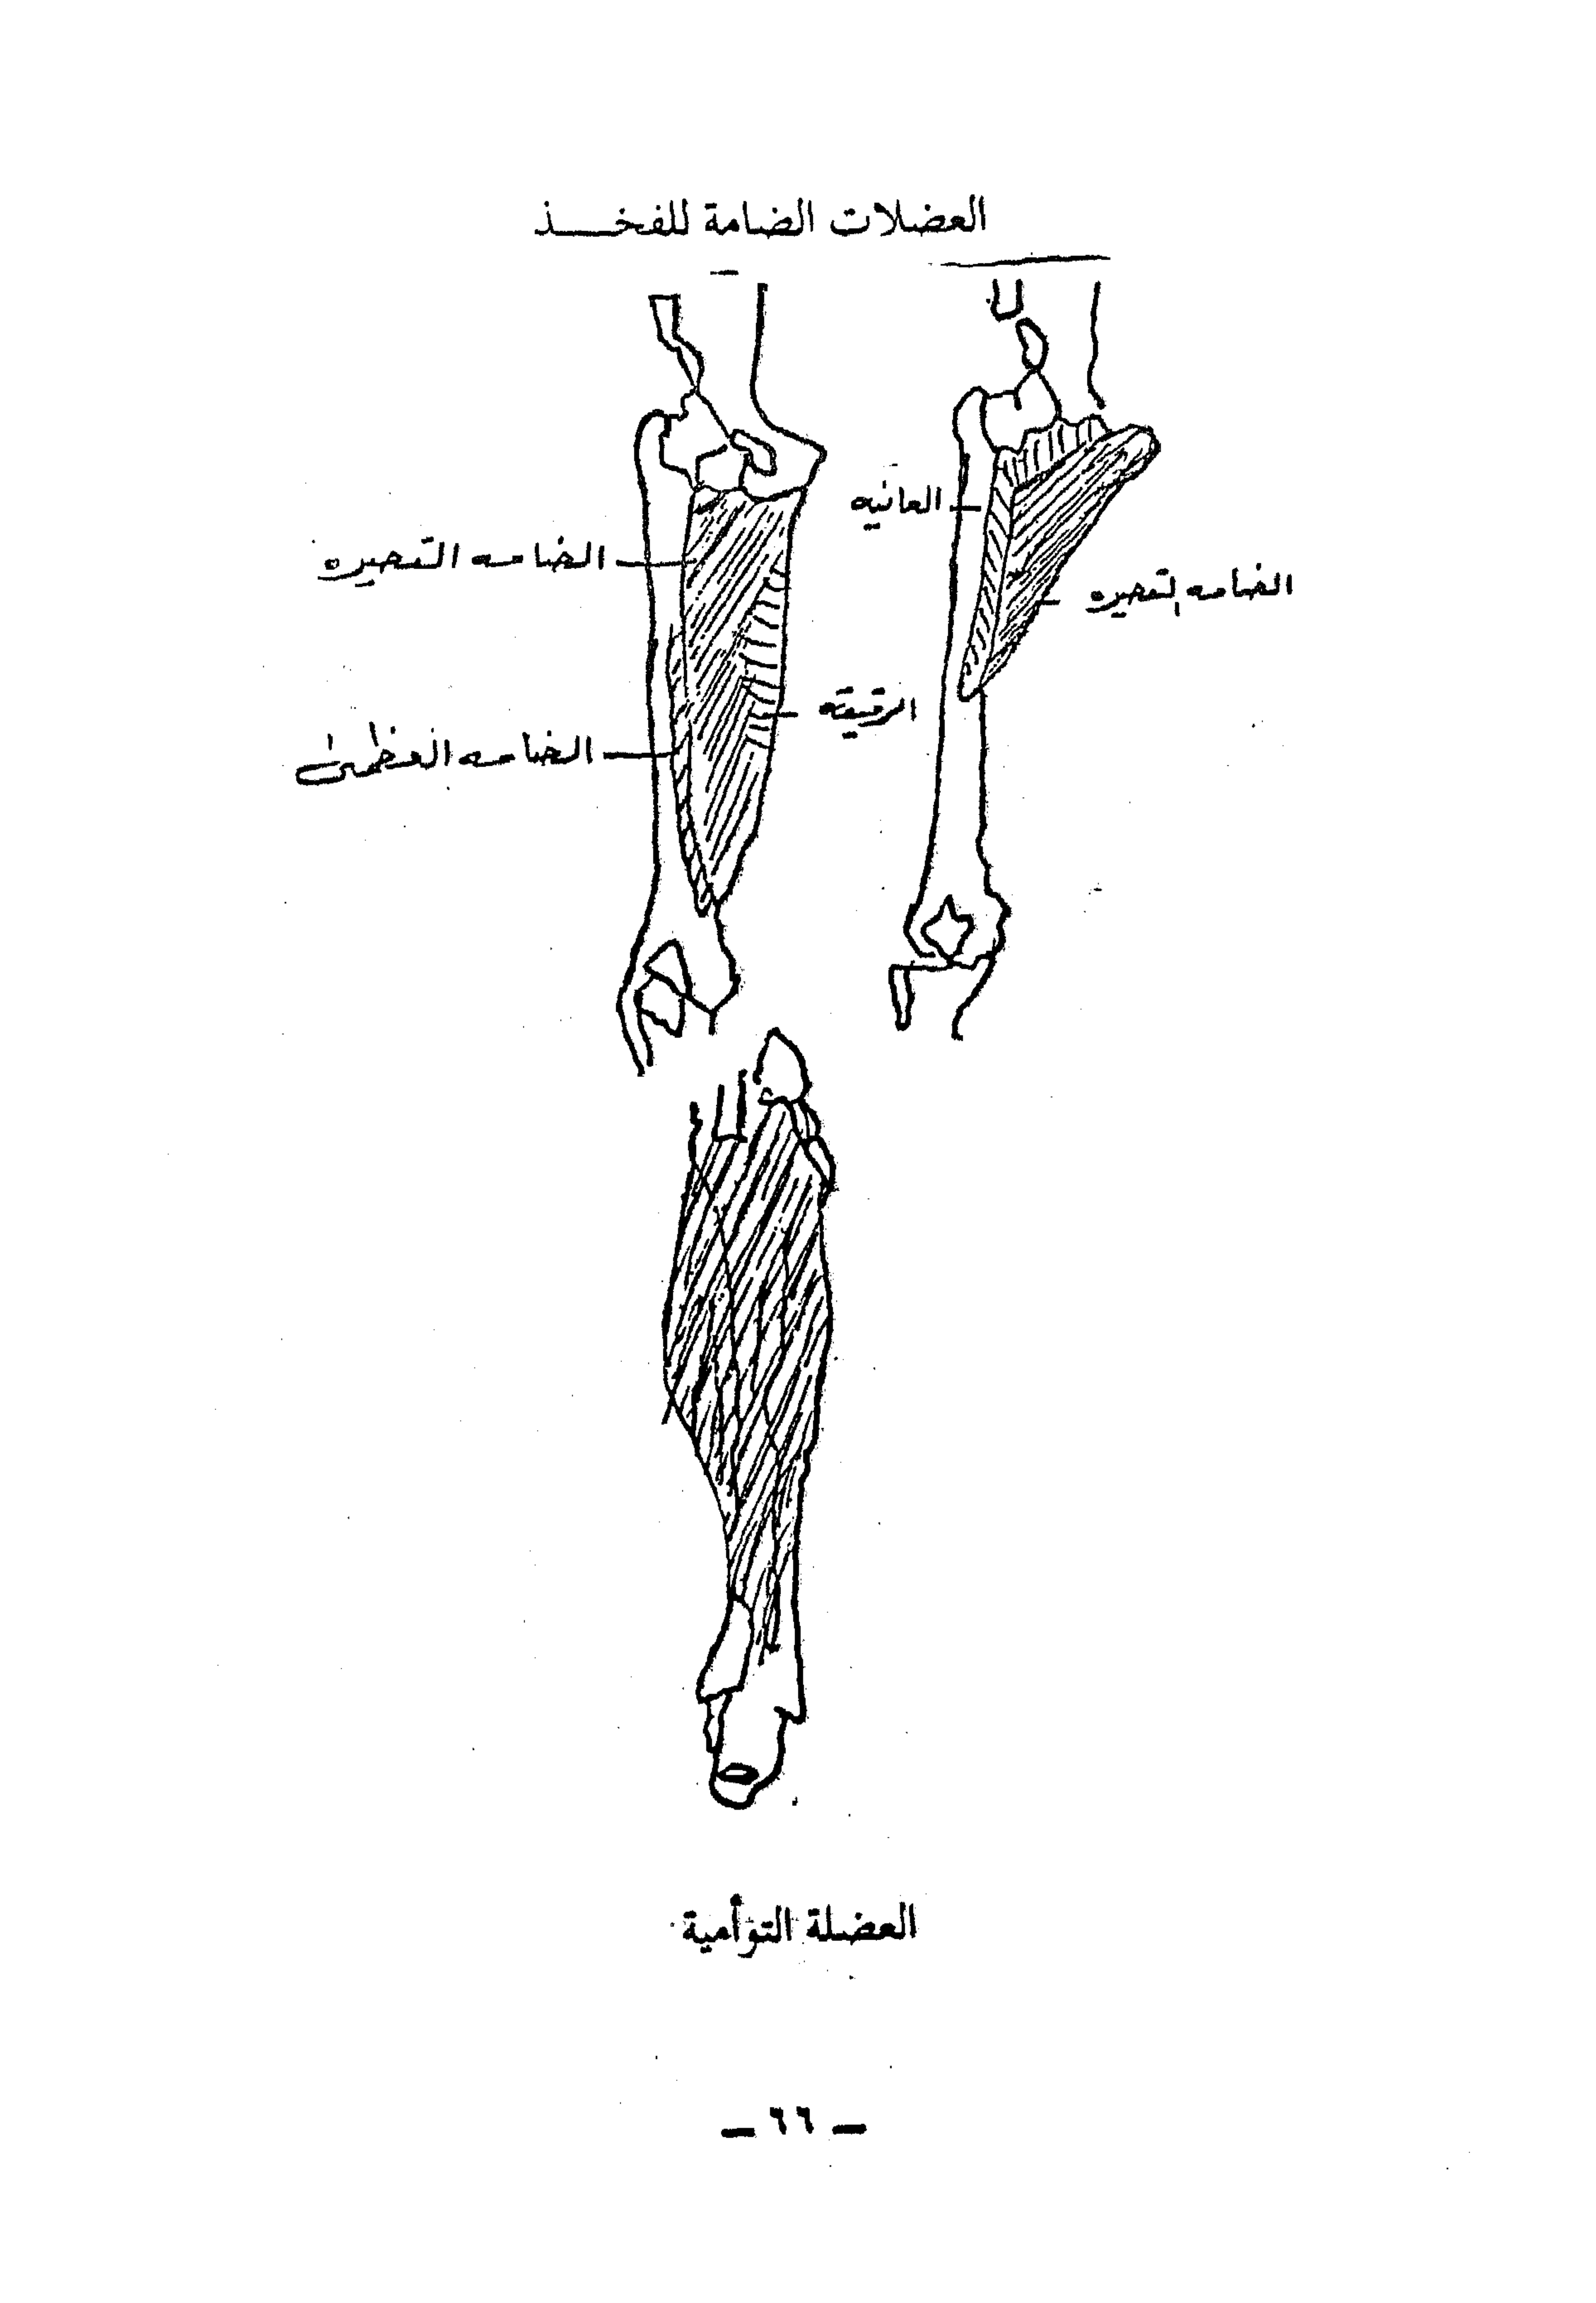 العضلات الضامة للفخـــذ
العانيه
الضامه القصيره
الضامه القصيره
الرقيقه
الضامه العظمى
العضلة التوأمية
— ٦٦ —